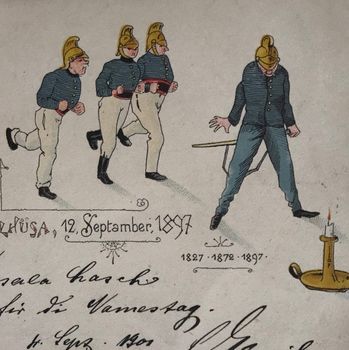 HÜSA, 12. Septamber, 1897
1827 · 1872 · 1897 ·
sala hasch
für di Namestag.
4. Sept. 1900